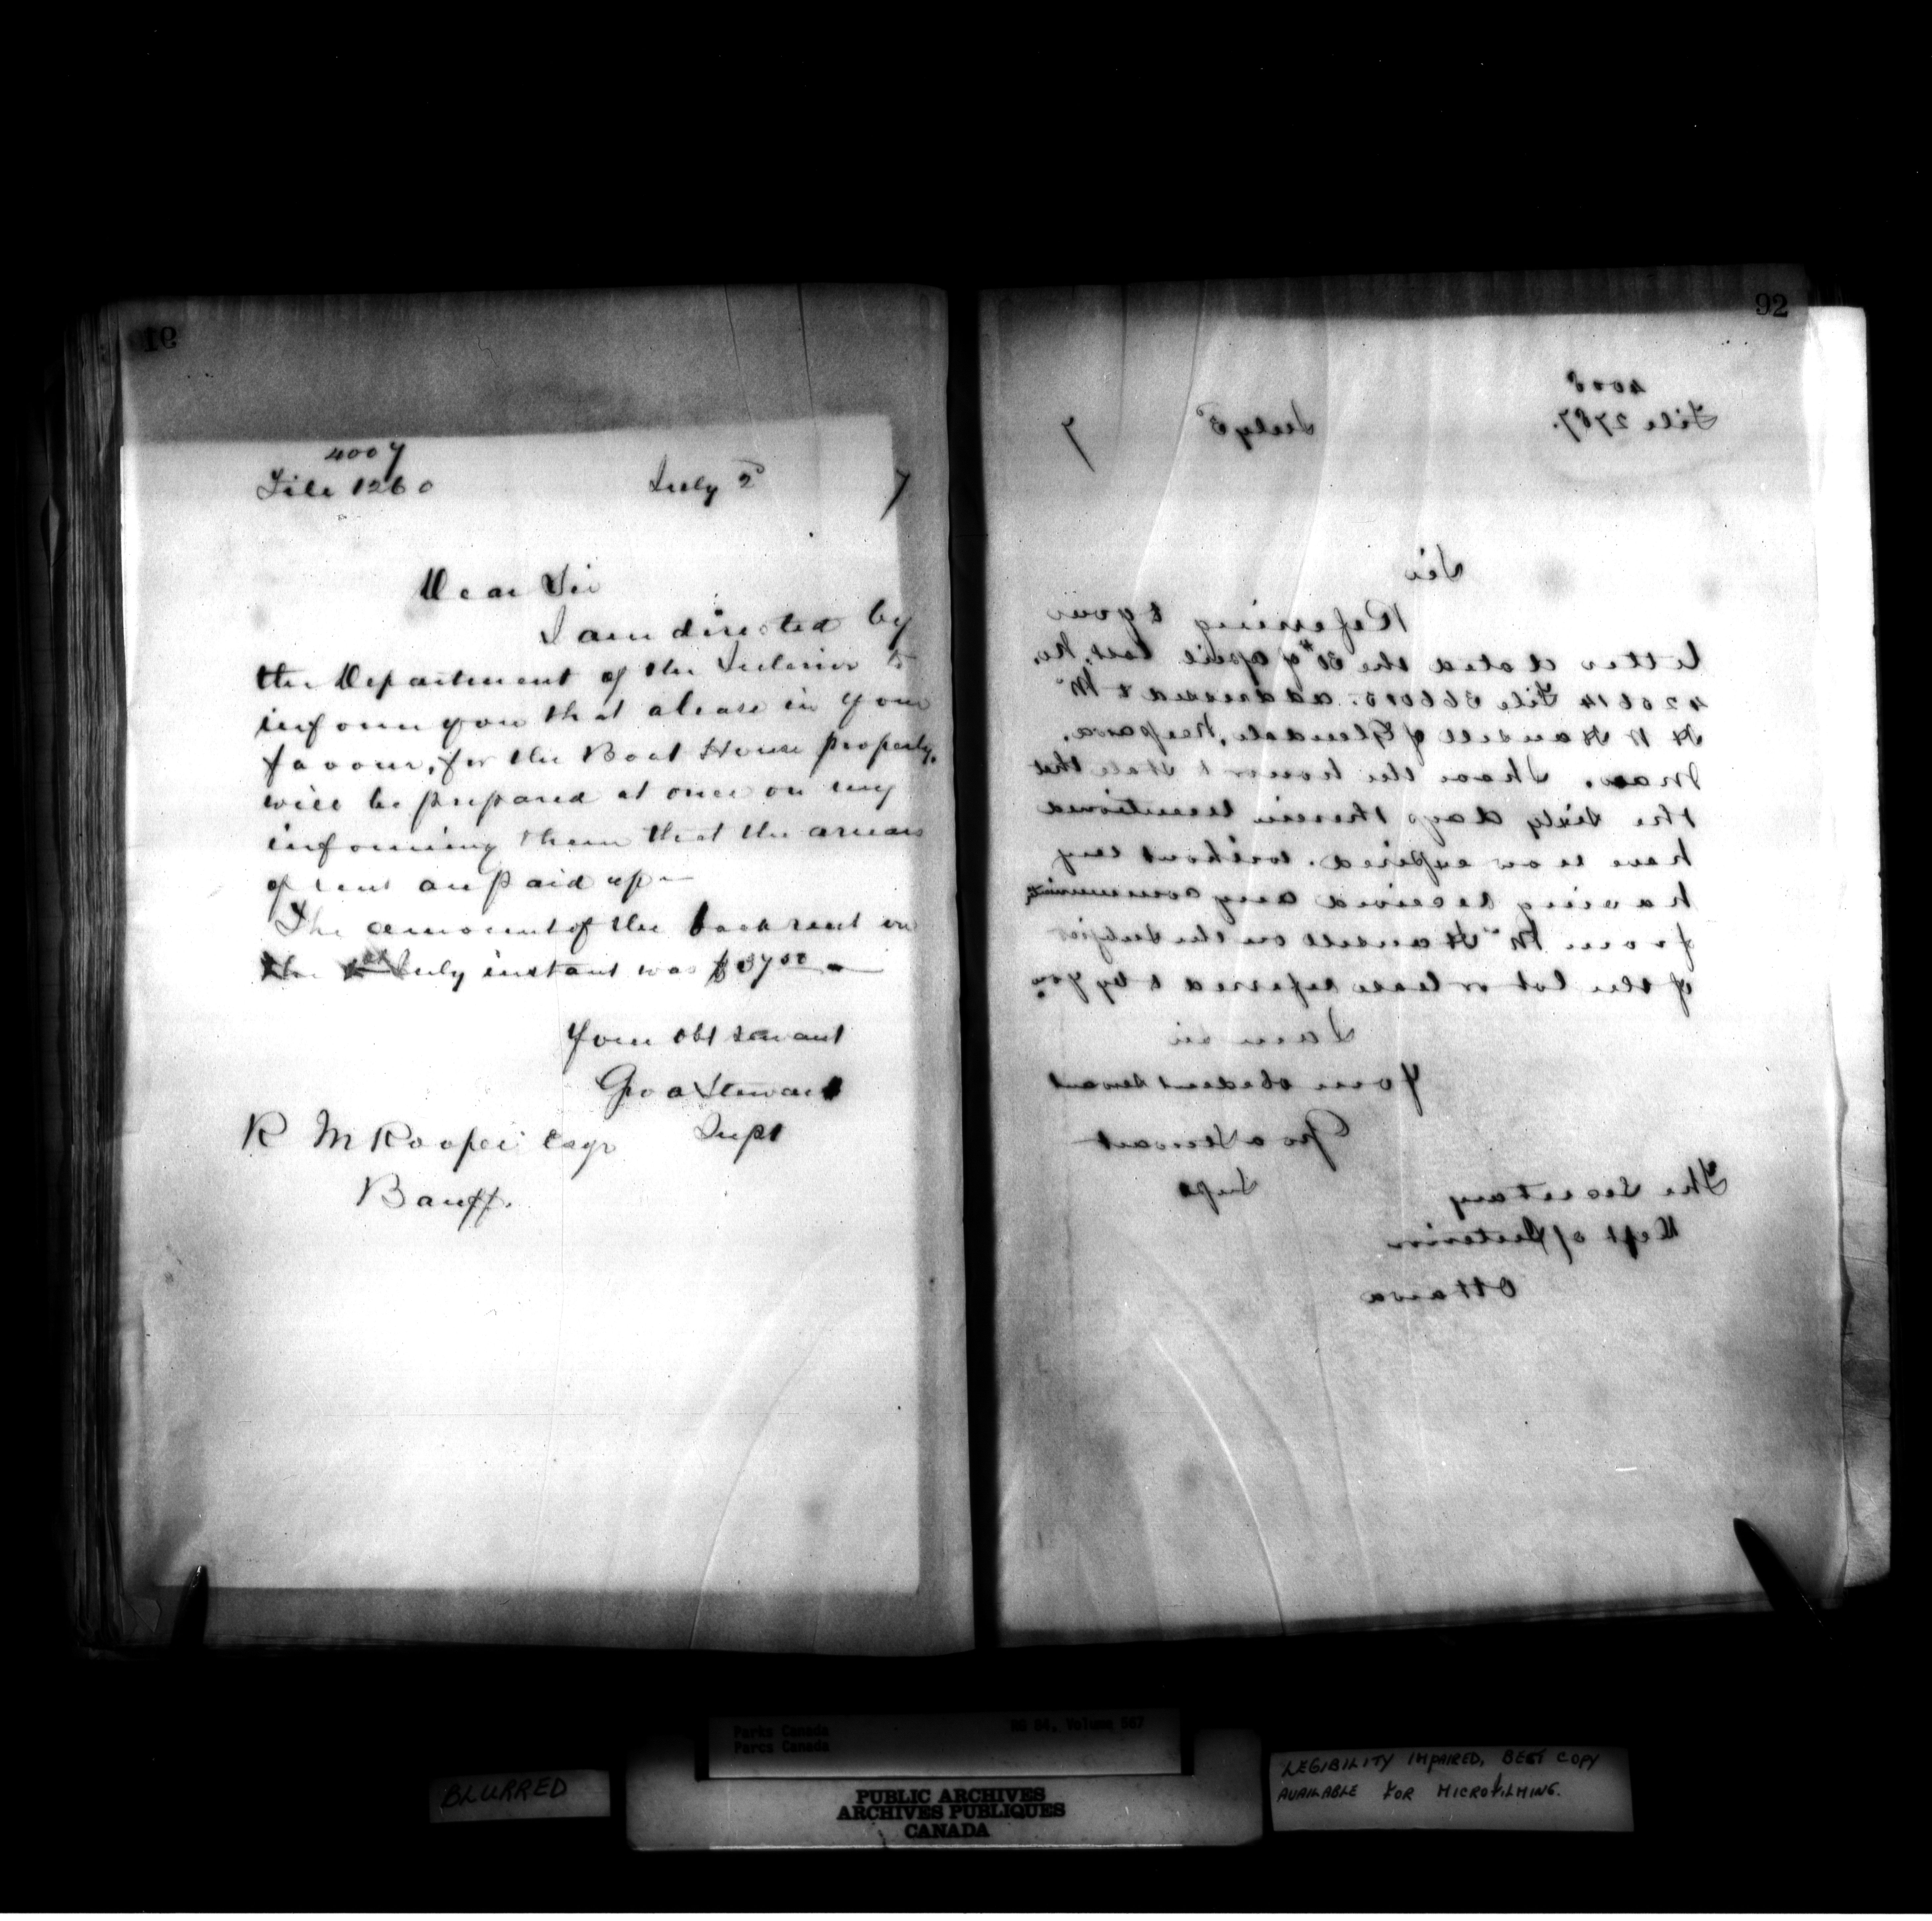 91
4007
File 1260 July 2d 7
Dear Sir
I am directed by
the Department of the Interior to
inform you that a lease in your
favour, for the Boat House property,
will be prepared at once on my
informing them that the arrears
of rent are paid up—
The amount of the back rent on
the July instant was $37.00 —
Your obt servant
Geo a Stewart
Supt
R M Rooper Esqr
Banff.
92
4008
File 2787. July 5th 7
Sir
Referring to your
letter dated the 30th of April last, No.
42614 File 36601. addressed to Mr
H N Hansell of Glendale, Neepawa,
Man. I have the honor to state that
the sixty days therein mentioned
have now expired. without my
having received any communication
from Mr Hansell on the subject
of the lot or lease referred to by you.
I am sir
Your obedient servant
Geo a Stewart
Supt
The Secretary
Dept of Interior
Ottawa
Parks Canada
Parcs Canada
RG 84, Volume 567
PUBLIC ARCHIVES
ARCHIVES PUBLIQUES
CANADA
BLURRED
LEGIBILITY IMPAIRED, BEST COPY
AVAILABLE FOR MICROFILMING.